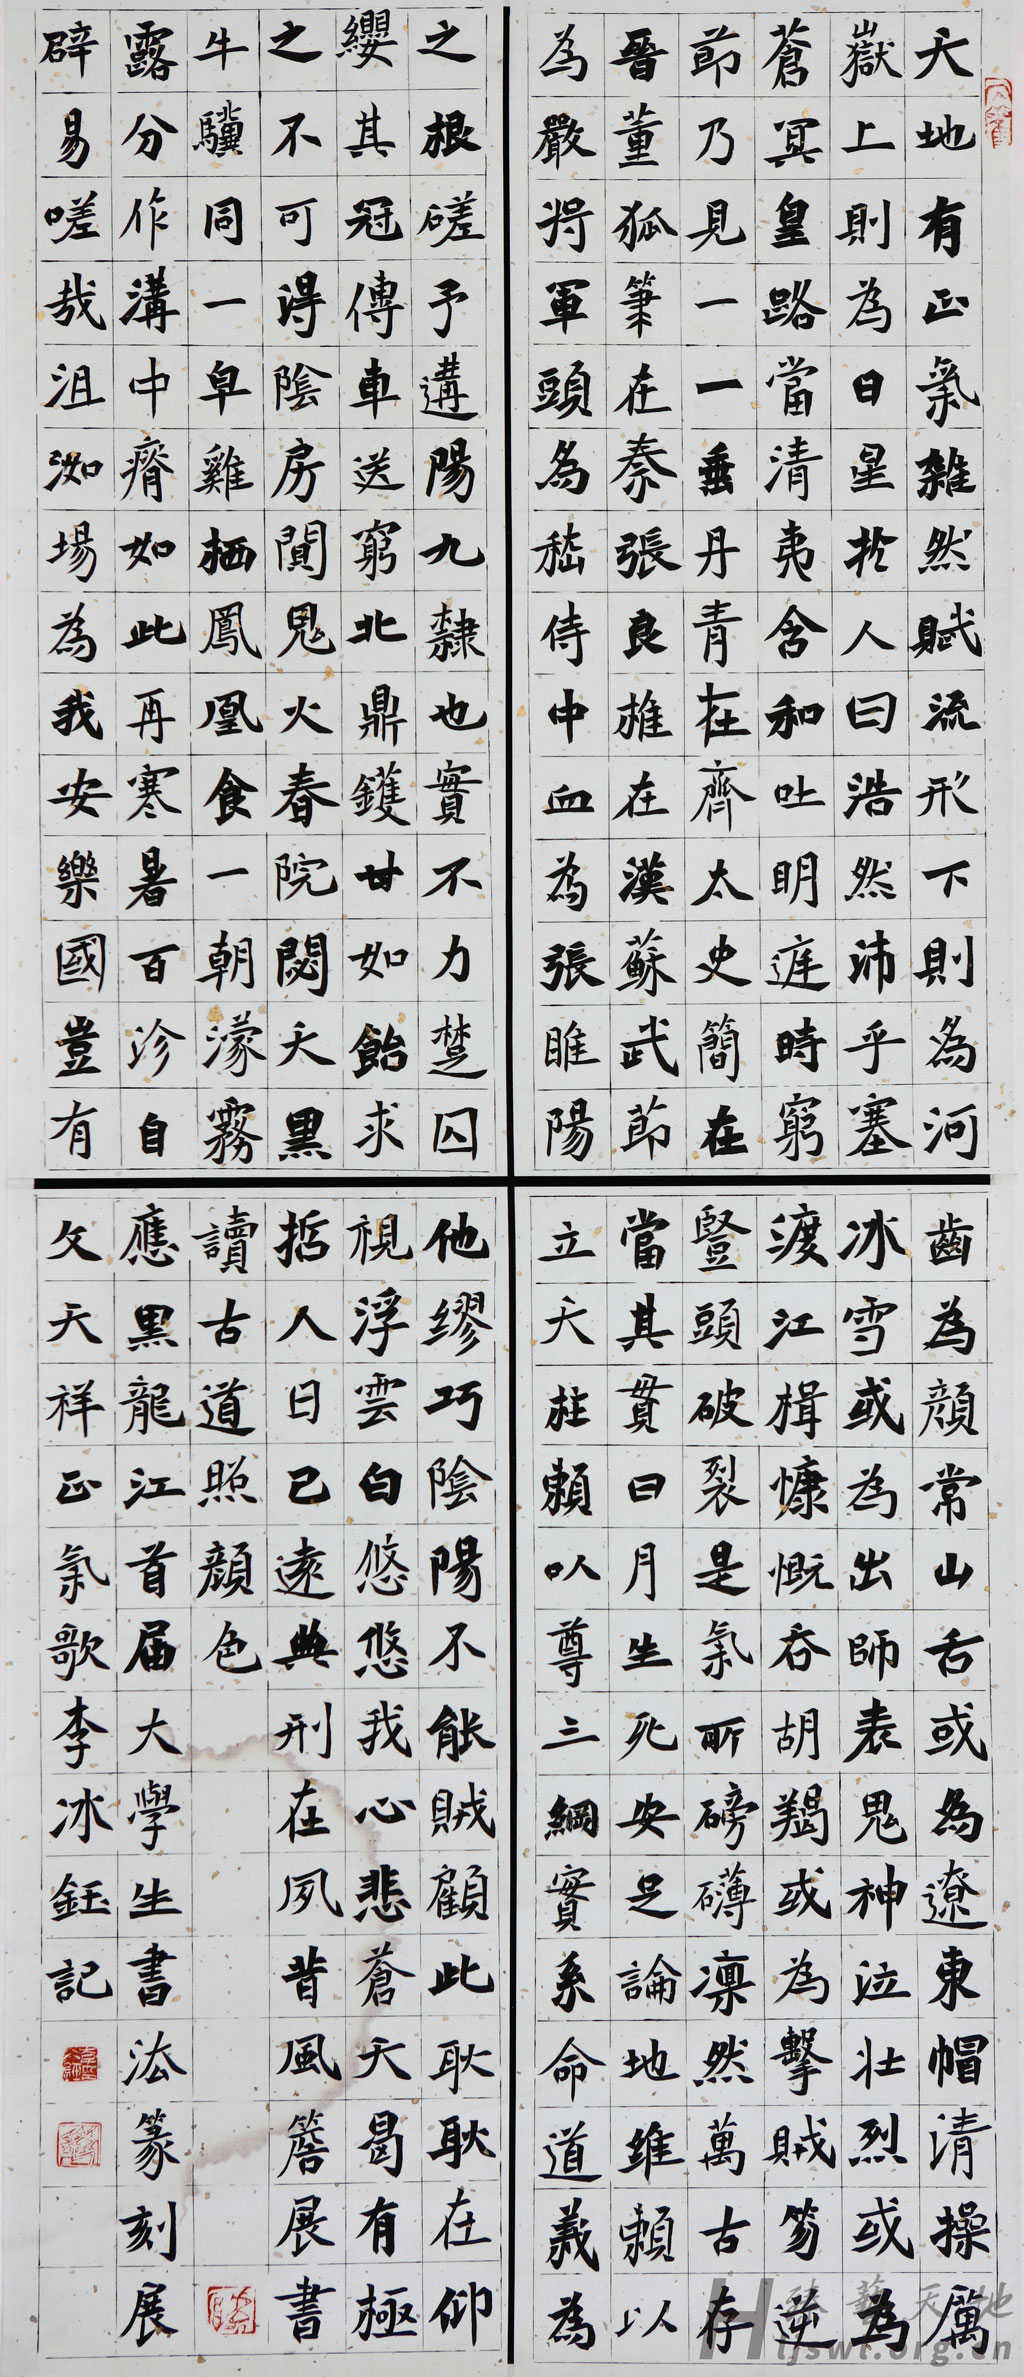 天地有正氣雜然賦流形下則為河
嶽上則為日星於人曰浩然沛乎塞
蒼冥皇路當清夷含和吐明庭時窮
節乃見一一垂丹青在齊太史簡在
晉董狐筆在秦張良椎在漢蘇武節
為嚴將軍頭為嵇侍中血為張睢陽
齒為顏常山舌或為遼東帽清操厲
冰雪或為出師表鬼神泣壯烈或為
渡江楫慷慨吞胡羯或為擊賊笏逆
豎頭破裂是氣所磅礴凜然萬古存
當其貫日月生死安足論地維賴以
立天柱賴以尊三綱實系命道義為
之根磋予遘陽九隸也實不力楚囚
纓其冠傳車送窮北鼎鑊甘如飴求
之不可得陰房闃鬼火春院閟天黑
牛驥同一皁雞栖鳳凰食一朝濛霧
露分作溝中瘠如此再寒暑百沴自
辟易嗟哉沮洳場為我安樂國豈有
他繆巧陰陽不能賊顧此耿耿在仰
視浮雲白悠悠我心悲蒼天曷有極
哲人日已遠典刑在夙昔風簷展書
讀古道照顏色
應黑龍江首屆大學生書法篆刻展
文天祥正氣歌李冰鈺記